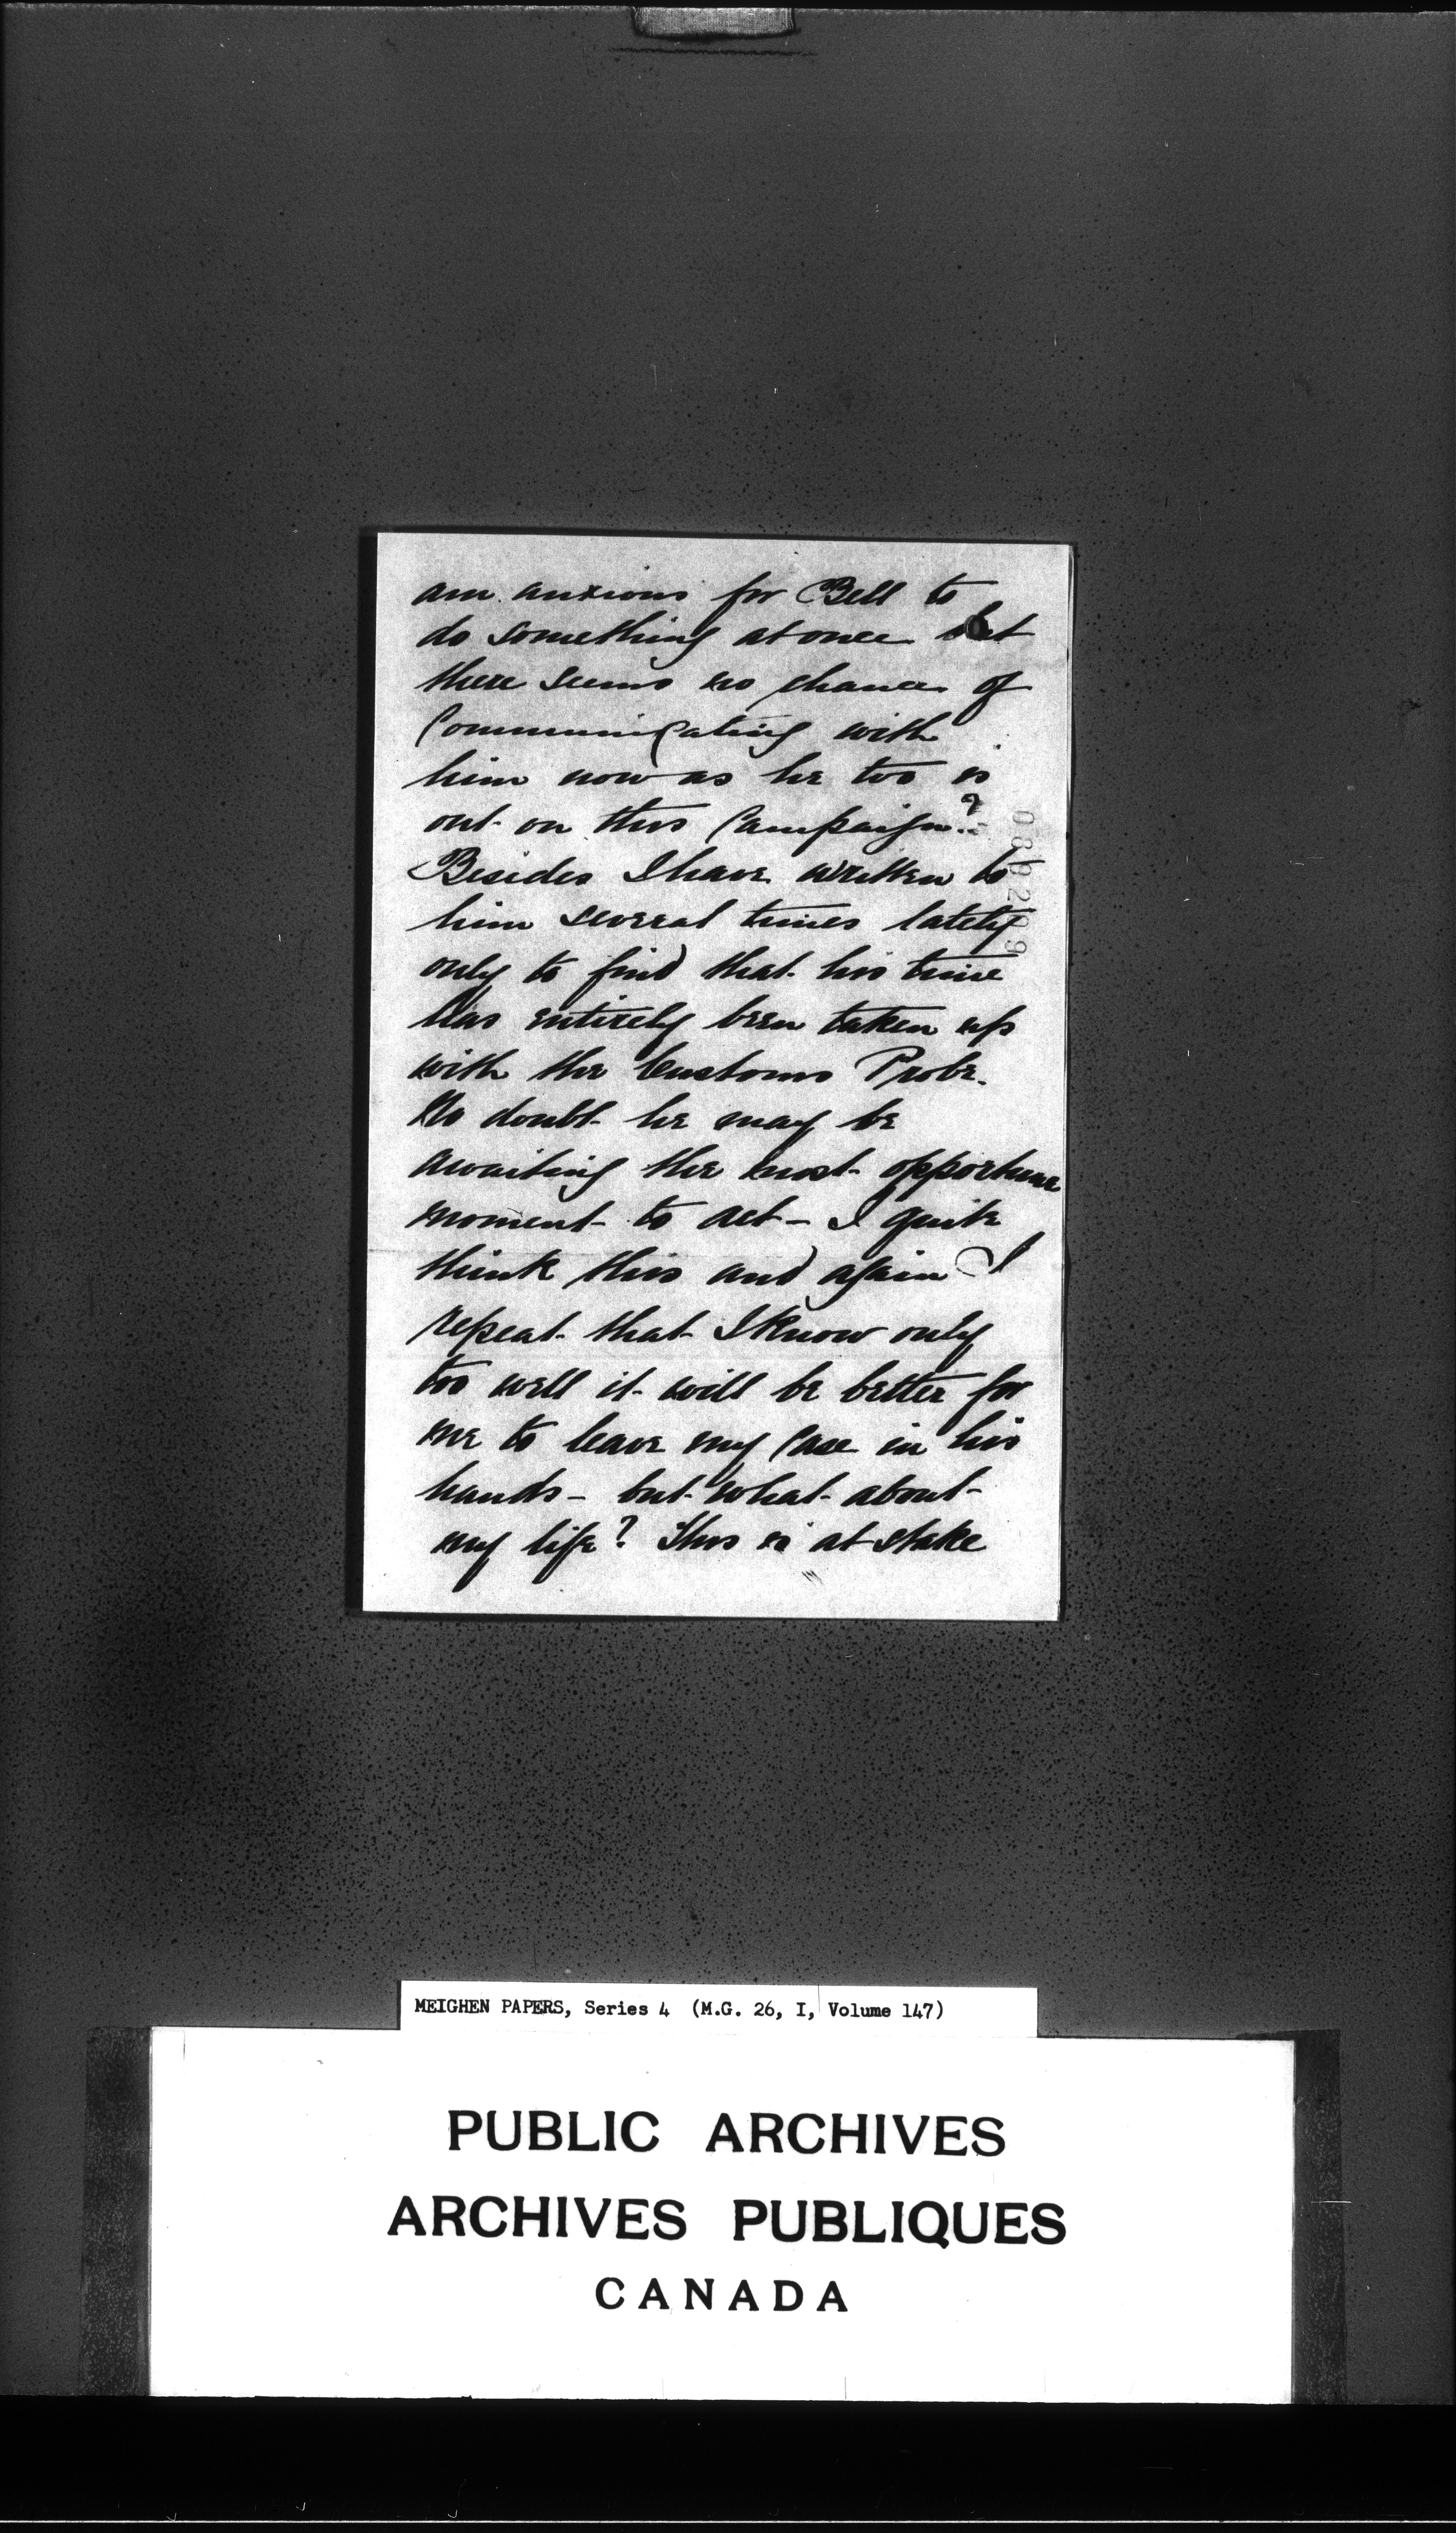 am anxious for Bell to
do something at once but
there seems no chance of
Communicating with
him now as he too is
out on this Campaign?
Besides I have written to
him several times lately
only to find that his time
has entirely been taken up
with the Customs Probe.
No doubt he may be
awaiting the most opportune
moment to act - I quite
think this and again I
repeat that I know only
too well it will be better for
me to leave my case in his
hands - but what about
my life? This is at stake
MEIGHEN PAPERS, Series 4 (M.G. 26, I, Volume 147)
PUBLIC ARCHIVES
ARCHIVES PUBLIQUES
CANADA